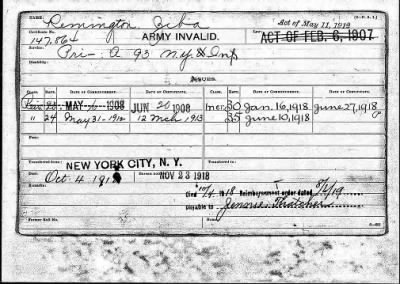 NAME: Remington Ziba Act of May 11, 1912
Certificate No. ARMY INVALID. ACT OF FEB. 6, 1907
147,864
Service:
Pri- A 93 N.Y. Inf
Disability:
ISSUES.
CLASS. RATE. DATE OF COMMENCEMENT. DATE OF CERTIFICATE. CLASS. RATE. DATE OF COMMENCEMENT. DATE OF CERTIFICATE.
MAY 1908 JUN 20 1908 30 Jan. 16, 1918 June 27, 1918
" 24 May 31-1912 12 Mch 1913 35 June 10, 1918
From:
Transferred to: Transferred from:
NEW YORK CITY, N. Y.
Died:
Oct 4 1918 NOV 23 1918
Died 10/4 1918 Reimbursement order dated
payable to Jennie Thatcher
Former Roll No.